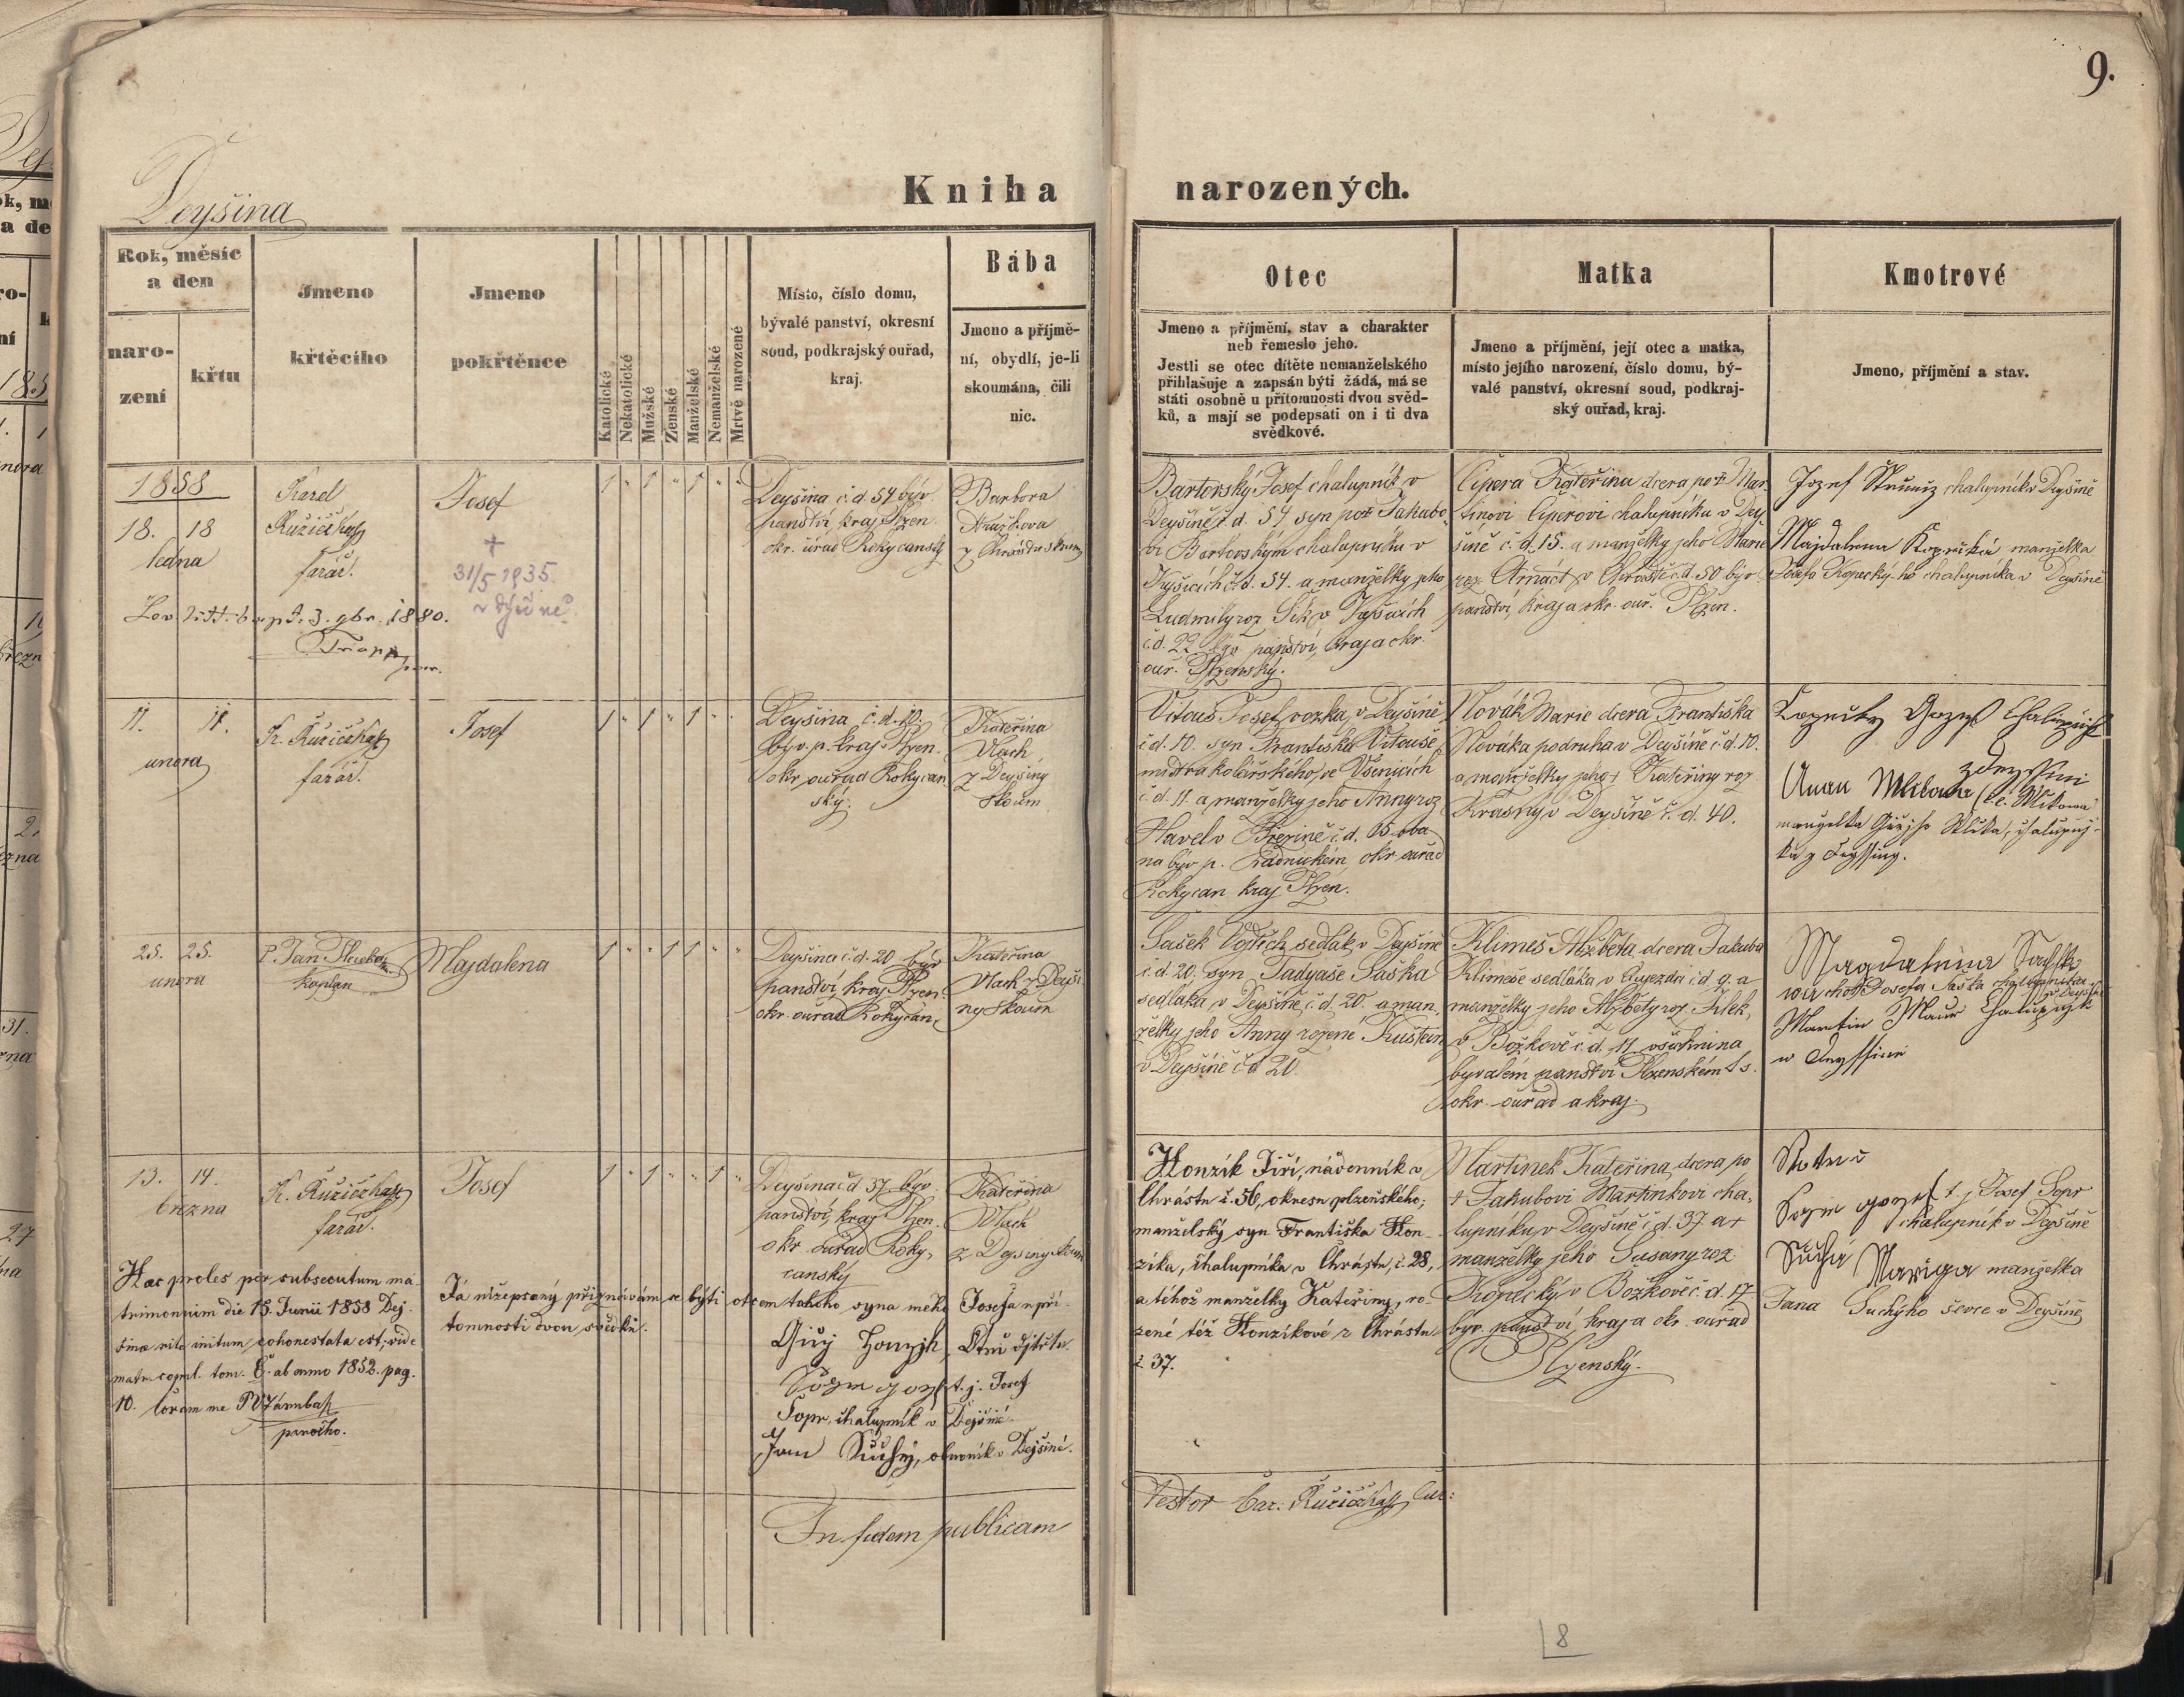 9.
Deyšina
Kniha narozených.
Rok, měsíc a den
narození
křtu
Jmeno křtěcího
Jmeno pokřtěnce
Katolické
Nekatolické
Mužské
Ženské
Manželské
Nemanželské
Mrtvě narozené
Místo, číslo domu,
bývalé panství, okresní
soud, podkrajský ouřad,
kraj.
Bába
Jmeno a příjmě-
ní, obydlí, je-li
skoumána, čili
nic.
Otec
Jmeno a příjmění, stav a charakter
neb řemeslo jeho.
Jestli se otec dítěte nemanželského
přihlašuje a zapsán býti žádá, má se
státi osobně u přítomnosti dvou svěd-
ků, a mají se podepsati on i ti dva
svědkové.
Matka
Jmeno a příjmění, její otec a matka,
místo jejího narození, číslo domu, bý-
valé panství, okresní soud, podkraj-
ský ouřad, kraj.
Kmotrové
Jmeno, příjmění a stav.
1858
18. 18
ledna
Karel
Růžička
farář.
Josef
+
31/5 1935
1 " 1 " 1 " "
Deyšina č. d. 54 býv.
panství, kraj Plzen.
okr. úřad Rokycanský
Barbora
z Chrástu skoum
Bartovský Josef chalupník v
Deyšině č. d. 54 syn po+ Jakubo-
vi Bartovským chalupníku v
Kyšicích č. d. 54. a manželky jeho
Ludmily roz. Šik z Kyšicích
č. d. 22 býv. panství, kraj a okr.
ouř. Plzenský.
Cipera Kateřina dcera po+ Mar-
tinovi Ciperovi chalupníku v Dey-
šině č. d. 15. a manželky jeho Marie
roz. v Chrástě č. d. 50 býv.
panství, kraj a okr. ouř. Plzen.
Jozef chalupník v Deyšině
Majdalena Kopecká manželka
Josefa Kopecký-ho chalupníka v Deyšině
1880.
11. 11.
unora
K. Růžička
farář.
Josef
1 " 1 " 1 " "
Deyšina č. d. 10.
býv. p. kraj. Plzen.
okr. ouřad Rokycan-
ský.
Kateřina
Vlach
z Deyšiny
skoum
Vitouš Josef vozka v Deyšině
č. d. 10. syn Františka Vitouše
mistra kolářského, ve Všenicích
č. d. 11. a manželky jeho Anny roz.
Havel v Březině č. d. 15 oba
na býv. p. Radnickém, okr. ouřad
Rokycan kraj Plzen.
Novák Marie dcera Františka
Nováka podruha v Deyšině č. d. 10.
a manželky jeho + Kateřiny roz.
Krasny v Deyšině č. d. 40.
Kopecky Gozef Chalupnjk
z deyssini
Anna
25. 25.
unora
P. Jan
kaplan
Majdalena
1 " " 1 1 " "
Deyšina č. d. 20 býv.
panství, kraj Plzen.
okr. ouřad Rokycan.
Kateřina
Vlach z Deyši-
ny skoum
Šašek Vojtěch, sedlák v Deyšině
č. d. 20. syn Tadyaše Šaška
sedláka, v Deyšině č. d. 20. a man-
želky jeho Anny rozené Kustein
v Deyšině č. d. 20
Klimeš Alžběta, dcera Jakuba
Klimeše sedláka v Oujezdci č. d. 9. a
manželky jeho Alžběty roz. Šilek,
v Božkově č. d. 11 všichni na
byvalém panství Plzenském
okr. ouřad a kraj.
Magdalena
Josefa Šaška chalupníka
v Deyšině
Martin Maur Chalupnjk
w deyssini
13. 14.
března
K. Růžička
farář.
Josef
1 " 1 " " 1 "
Deyšina č. d. 37. býv.
panství, kraj Plzen.
okr. ouřad Roky-
canský
Kateřina
Vlach
z Deyšiny skoum
Honzík Jiří, nádenník v
Chrástu č. 56, okresu plzeňského,
manželský syn Františka Hon-
zíka, chalupníka v Chrástu, č. 28,
a téhož manželky Kateřiny, ro-
zené též Honzíkové z Chrástu
č. 37.
Martinek Kateřina, dcera po
+ Jakubovi Martinkovi cha-
lupníku v Deyšině č. d. 37. a +
manželky jeho Susany roz.
Kopecky v Božkově č. d. 17
byv. panství, kraj a okr. ouřad
Plzenský.
Sopr gozef t. j. Josef Sopr
chalupník v Deyšině
Sucha Mariga manželka
Jana Suchýho ševce v Deyšině
Haec proles per subsecutum ma-
trimonium die 15. Junii 1858 Dej-
šinae rite initum cohonestata est, vide
matr. copul. tom. 8. ab anno 1852. pag.
10. Coram me
parocho.
Já nížepsaný přiznávám se býti otcem tohoto syna mého Josefa u pří-
tomnosti dvou svědků.
Giřj Honzjk, Otec djtěte.
Sopr gozef t. j. Josef
Sopr, chalupník v Dejšině.
Jan Suchý, v Dejšině.
In fidem publicam
Testor Car: Růžička, Cur:
8